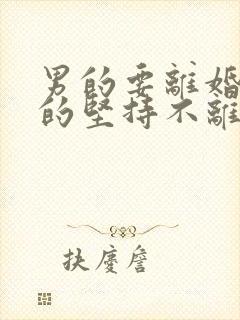 男的要離婚
的堅持不離
扶慶詹